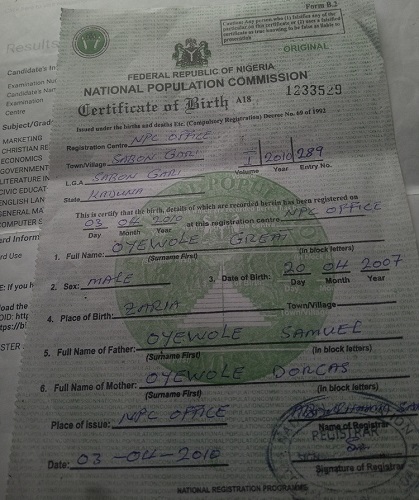 Form B.2
Caution: Any person who (1) falsifies any of the
particular on this certificate or (2) uses a falsified
certificate as true knowing to be false is liable to
prosecution
ORIGINAL
FEDERAL REPUBLIC OF NIGERIA
NATIONAL POPULATION COMMISSION
Certificate of Birth A18
1233529
Issued under the births and deaths Etc. (Compulsory Registration) Decree No. 69 of 1992
Registration Centre NPC OFFICE
Town/Village SABON GARI
1 2010 289
Volume Year Entry No.
L.G.A SABON GARI
State KADUNA
This is certify that the birth, details of which are recorded herein has been registered on
03 04 2010 at this registration centre NPC OFFICE
Day Month Year
1. Full Name: OYEWOLE GREAT
(Surname First) (in block letters)
2. Sex: MALE 3. Date of Birth: 20 04 2007
Day Month Year
4. Place of Birth: ZARIA Town/Village
5. Full Name of Father: OYEWOLE SAMUEL
(Surname First) (in block letters)
6. Full Name of Mother: OYEWOLE DORCAS
(Surname First) (in block letters)
Place of Issue: NPC OFFICE
Name of Registrar
REGISTRAR
Date: 03-04-2010
Signature of Registrar
NATIONAL REGISTRATION PROGRAMME
Results
Candidate's In
Examination
Candidate's
Examination
Centre
Subject/Grad
MARKETING
CHRISTIAN RE
ECONOMICS
GOVERNMENT
LITERATURE IN
CIVIC EDUCAT
ENGLISH LAN
GENERAL MA
COMPUTER S
ard Inform
rd Use
E: If you h
load the